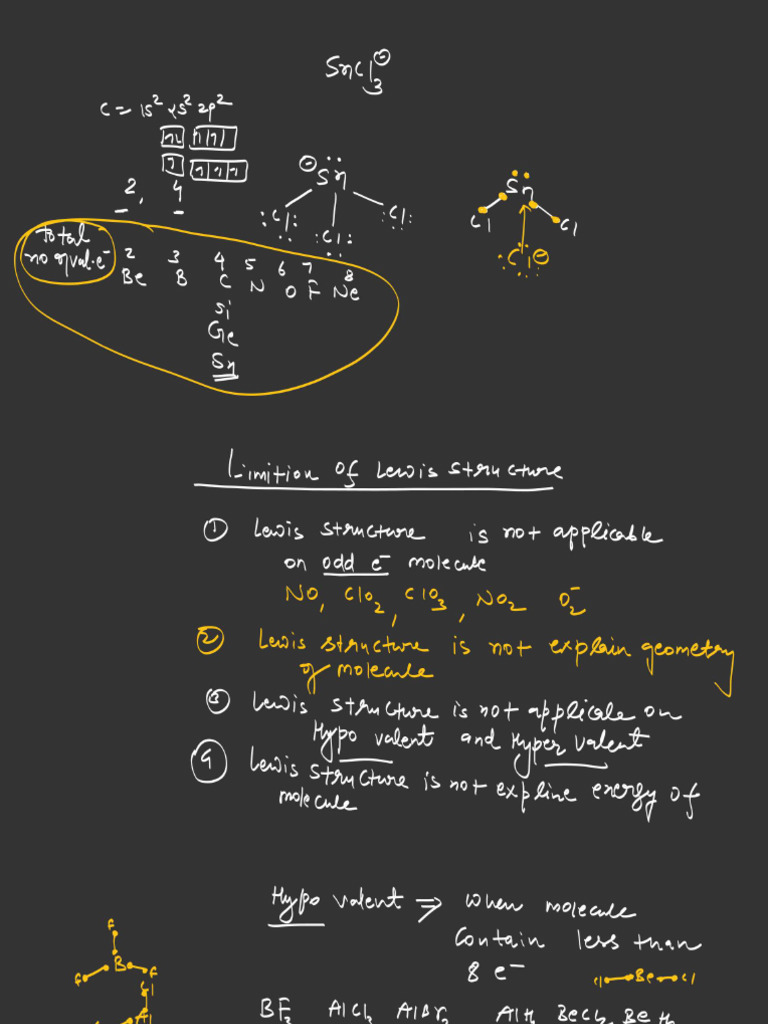 SnCl3⊖
C = 1s² 2s² 2p²
2, 4
⊖ Sn
Cl Cl
Cl
Sn
Cl Cl
Cl⊖
Total
no of val. e⁻
2 3 4 5 6 7 8
Be B C N O F Ne
Si
Ge
Sn
Limition of Lewis structure
① Lewis structure is not applicable
on odd e⁻ molecule
NO, ClO2, ClO3, NO2 O2⁻
② Lewis structure is not explain geometry
of molecule
③ Lewis structure is not applicale on
Hypo valent and Hyper valent
④ Lewis structure is not expline energy of
molecule
Hypo valent ⇒ When molecule
Contain less than
8 e⁻ Cl Be Cl
F
B
F F
Cl
Al
BF3 AlCl3 AlBr3 AlH3 BeCl2, BeH2